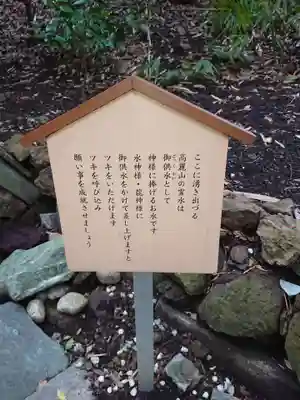 ここに湧き出づる
高麗山の霊水は
御供水として
神様に捧げるお水です
水神様・龍神様に
御供水をかけて差し上げますと
ツキをいただけます
ツキを呼び込み
願い事を成就させましょう